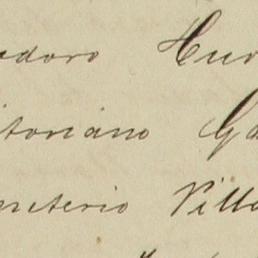 odoro Hur
itoriano Ga
meterio Villa